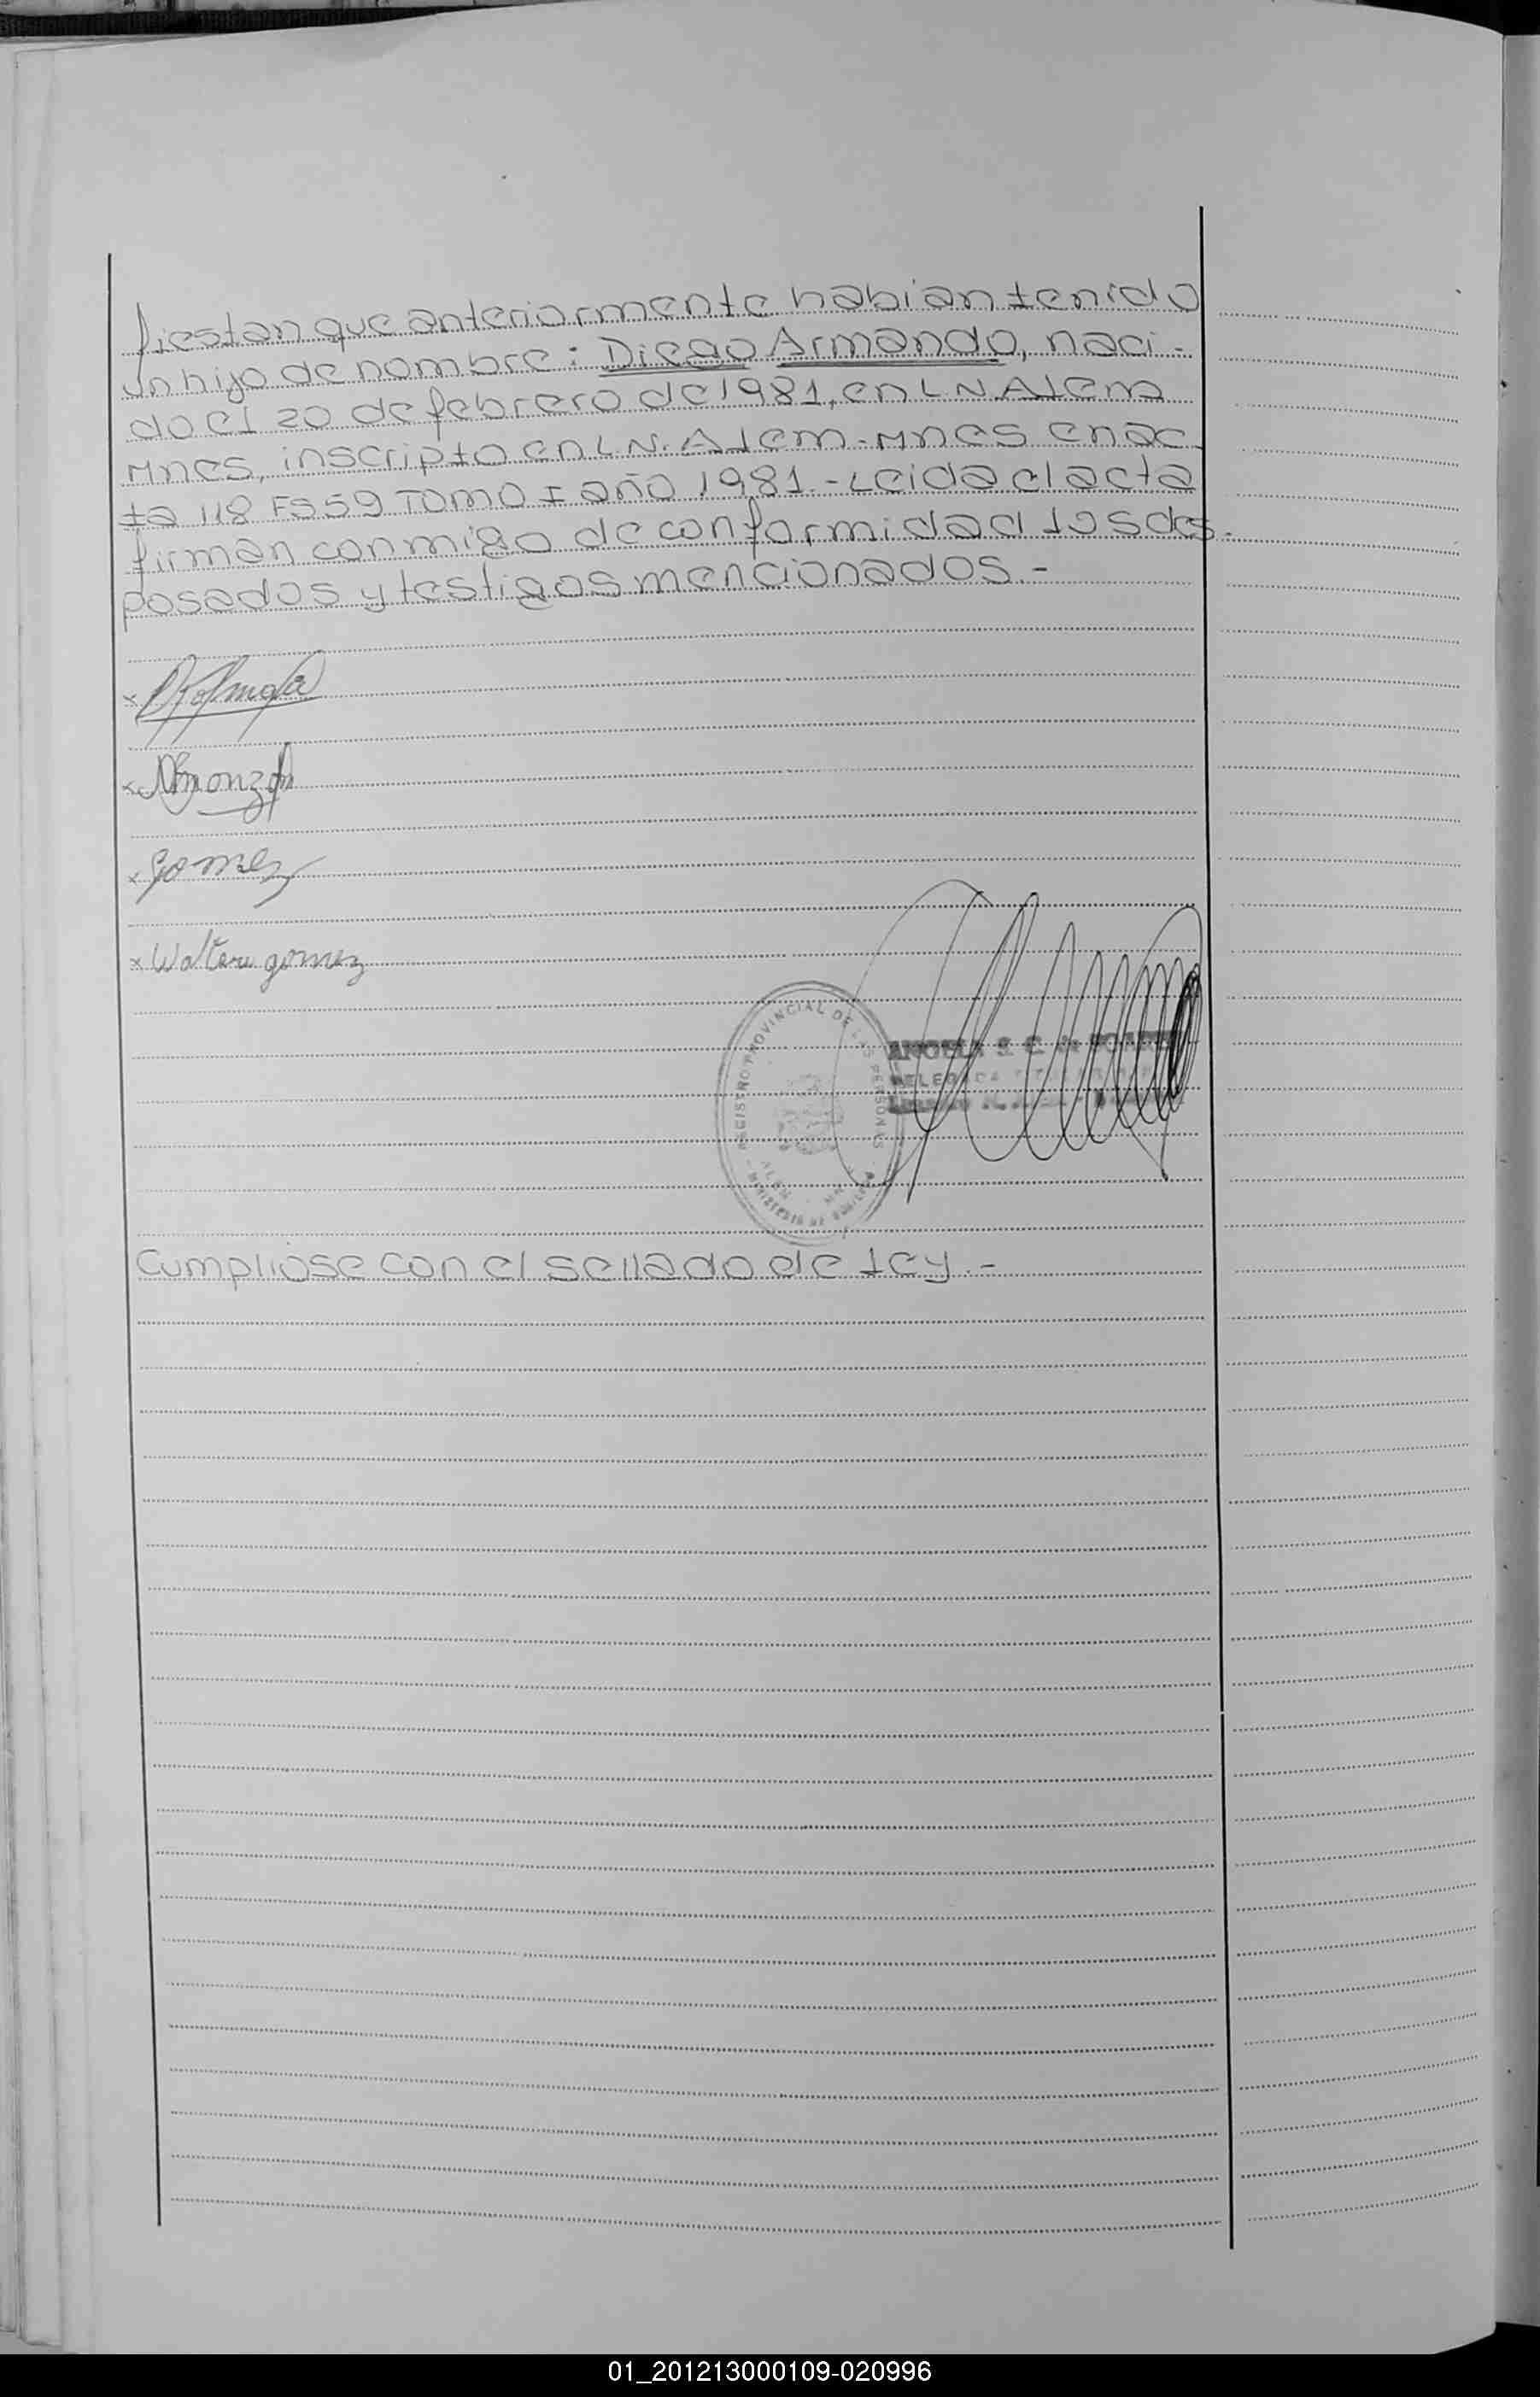 fiestan que anteriormente habian tenido
un hijo de nombre: Diego Armando, naci-
do el 20 de febrero de 1981, en L N Alem
Mnes, inscripto en L N. Alem-Mnes en ac
ta 118 Fs 59 TOMO I año 1981.-Leida el acta
firman conmigo de conformidad los des-
posados y testigos mencionados.-
x
x Monzon
x Gomez
x Walter gomez
REGISTRO PROVINCIAL DE LAS PERSONAS
ALEM
MINISTERIO DE
ANGELA S. C. de
DELEGADA
Cumpliose con el sellado de ley.-
01_201213000109-020996